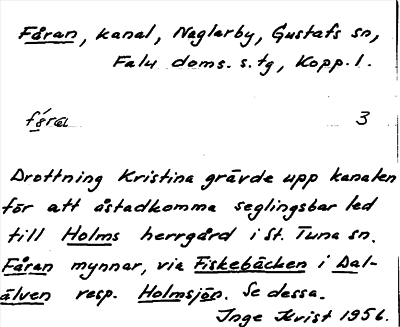 Fåran, kanal, Naglarby, Gustafs sn,
Falu doms. s. tg, Kopp. l.
fåra 3
Drottning Kristina grävde upp kanalen
för att åstadkomma seglingsbar led
till Holms herrgård i St. Tuna sn.
Fåran mynnar, via Fiskebäcken i Dal-
älven resp. Holmsjön. Se dessa.
Inge Kvist 1956.